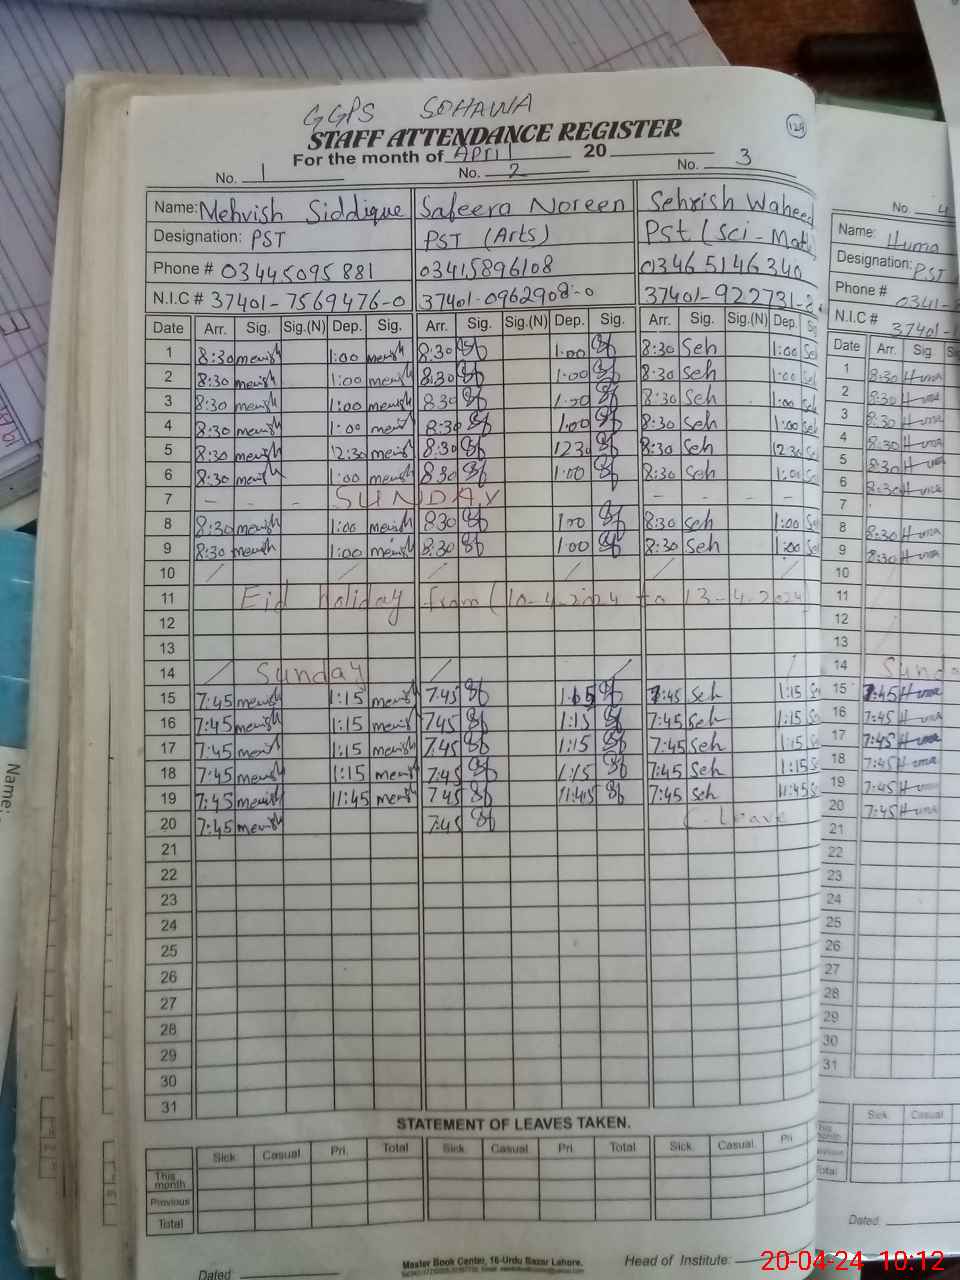 GGPS SOHAWA
STAFF ATTENDANCE REGISTER
129
For the month of April 20
No. 1 No. 2 No. 3
Name: Mehvish Siddique Safeera Noreen Sehrish Waheed
Designation: PST PST (Arts) Pst (Sci-Math
Phone # 03445095881 03415896108 03465146340
N.I.C # 37401-7569476-0 37401-0962908-0 37401-922731-8
Date Arr. Sig. Sig.(N) Dep. Sig. Arr. Sig. Sig.(N) Dep. Sig. Arr. Sig. Sig.(N) Dep. Sig
1 8:30 mevish 1:00 mevish 8:30 Sf 1:00 Sf 8:30 Seh 1:00 Seh
2 8:30 mevish 1:00 mevish 8:30 Sf 1:00 Sf 8:30 Seh 1:00 Seh
3 8:30 mevish 1:00 mevish 8:30 Sf 1:00 Sf 8:30 Seh 1:00 Seh
4 8:30 mevish 1:00 mevish 8:30 Sf 1:00 Sf 8:30 Seh 1:00 Seh
5 8:30 mevish 12:30 mevish 8:30 Sf 1230 Sf 8:30 Seh 12:30 Seh
6 8:30 mevish 1:00 mevish 8:30 Sf 1:00 Sf 8:30 Seh 1:00 Seh
7 - - - SUNDAY - - - - -
8 8:30 mevish 1:00 mevish 8:30 Sf 1:00 Sf 8:30 Seh 1:00 Seh
9 8:30 mevish 1:00 mevish 8:30 Sf 1:00 Sf 8:30 Seh 1:00 Seh
10
11 Eid holiday from (10-4-2024 to 13-4-2024)
12
13
14 Sunday
15 7:45 mevish 1:15 mevish 7:45 Sf 1:15 Sf 7:45 Seh 1:15 Se
16 7:45 mevish 1:15 mevish 7:45 Sf 1:15 Sf 7:45 Seh 1:15 Se
17 7:45 mevish 1:15 mevish 7:45 Sf 1:15 Sf 7:45 Seh 1:15 Se
18 7:45 mevish 1:15 mevish 7:45 Sf 1:15 Sf 7:45 Seh 1:15 Se
19 7:45 mevish 11:45 mevish 7:45 Sf 11:45 Sf 7:45 Seh 11:45 Se
20 7:45 mevish 7:45 Sf C-Leave
21
22
23
24
25
26
27
28
29
30
31
STATEMENT OF LEAVES TAKEN.
Sick Casual Pri. Total Sick. Casual Pri. Total Sick. Casual. Pri
This month
Previous
Total
Master Book Center, 16-Urdu Bazar Lahore.
Dated Head of Institute:
No 4
Name: Huma
Designation: PST
Phone # 0341-8
N.I.C # 37401-1
Date Arr. Sig.
1 8:30 Huma
2 8:30 Huma
3 8:30 Huma
4 8:30 Huma
5 8:30 Huma
6 8:30 Huma
7
8 8:30 Huma
9 8:30 Huma
10
11
12
13
14 Sunda
15 7:45 Huma
16 7:45 Huma
17 7:45 Huma
18 7:45 Huma
19 7:45 Huma
20 7:45 Huma
21
22
23
24
25
26
27
28
29
30
31
Sick. Casual
Dated
Name:
20-04-24 10:12